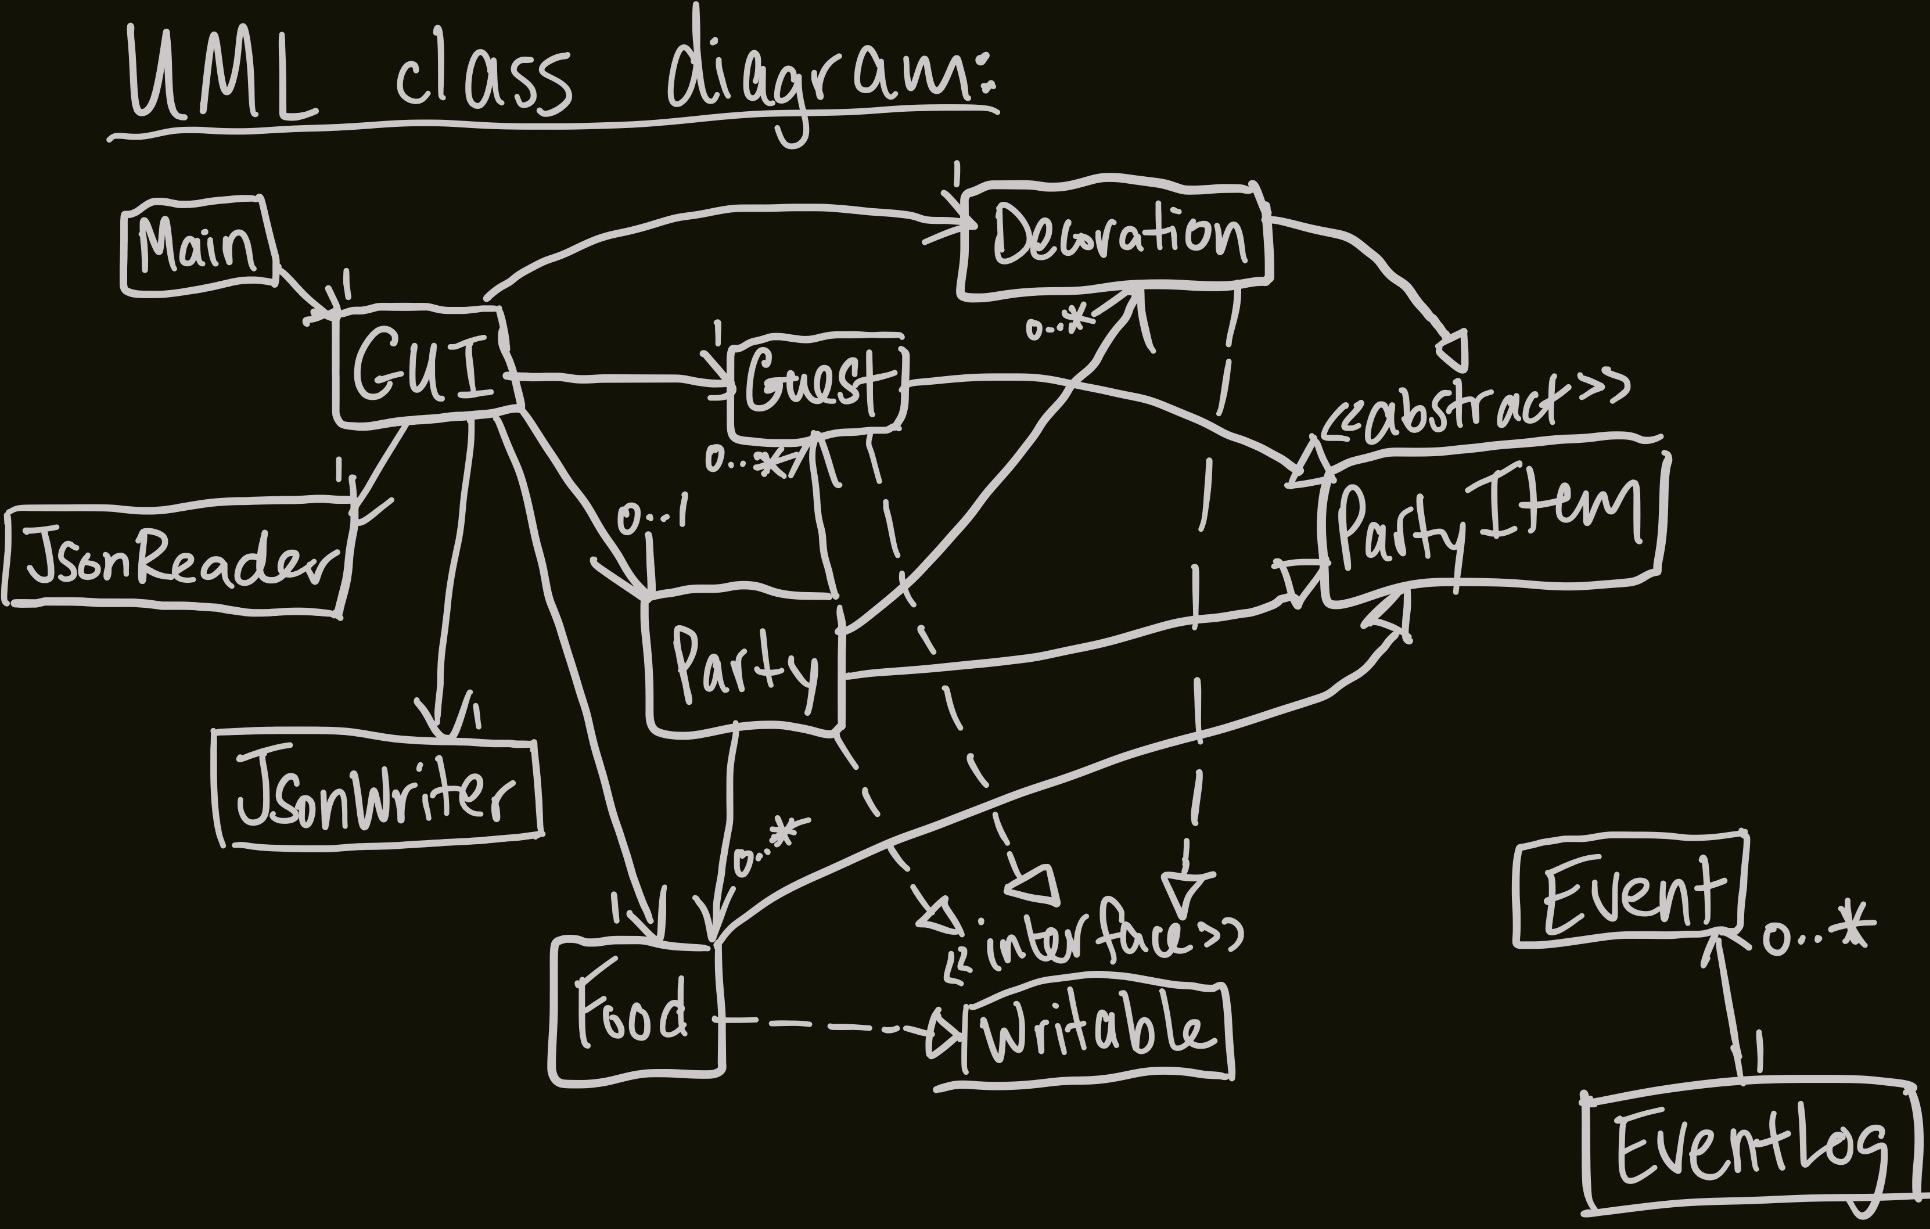 UML class diagram:
1
Main
Decoration
1
GUI
1
Guest
0..*
<<abstract>>
Party Item
0..*
1
JsonReader
0..1
Party
1
JsonWriter
0..*
1
Food
<<interface>>
Writable
Event
0..*
1
EventLog